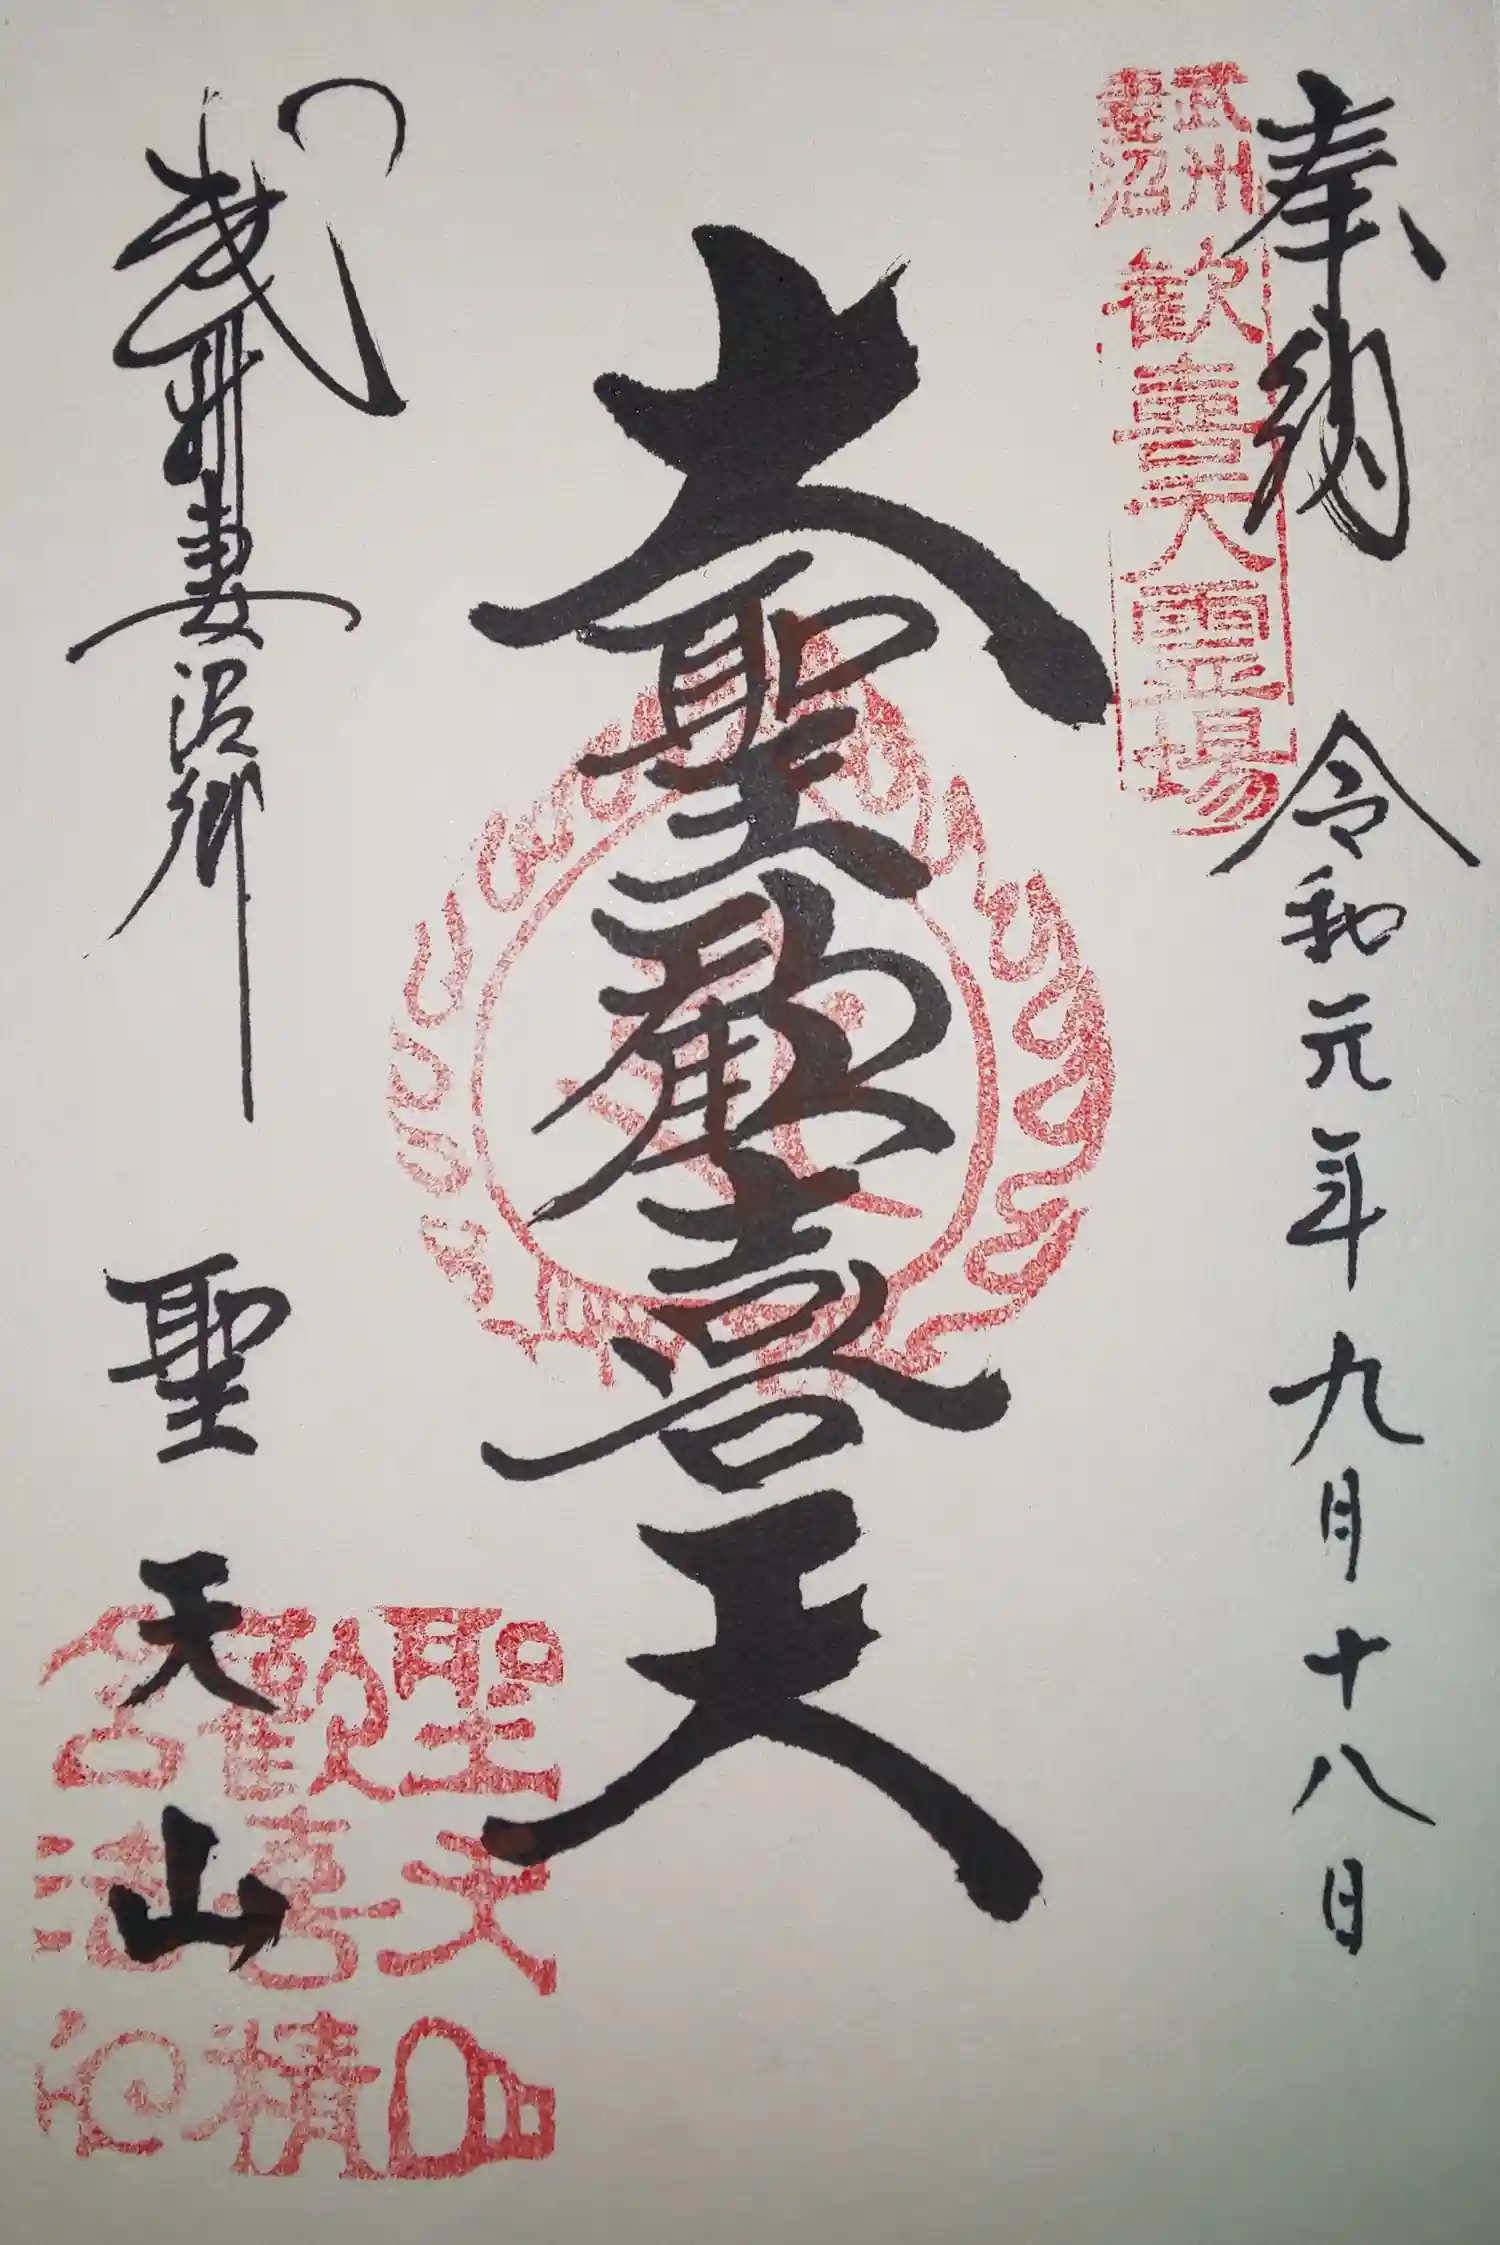 奉納
令和元年九月十八日
武州
妻沼
歓喜天霊場
大聖歓喜天
武州妻沼郷
聖天山
聖天山
歓喜